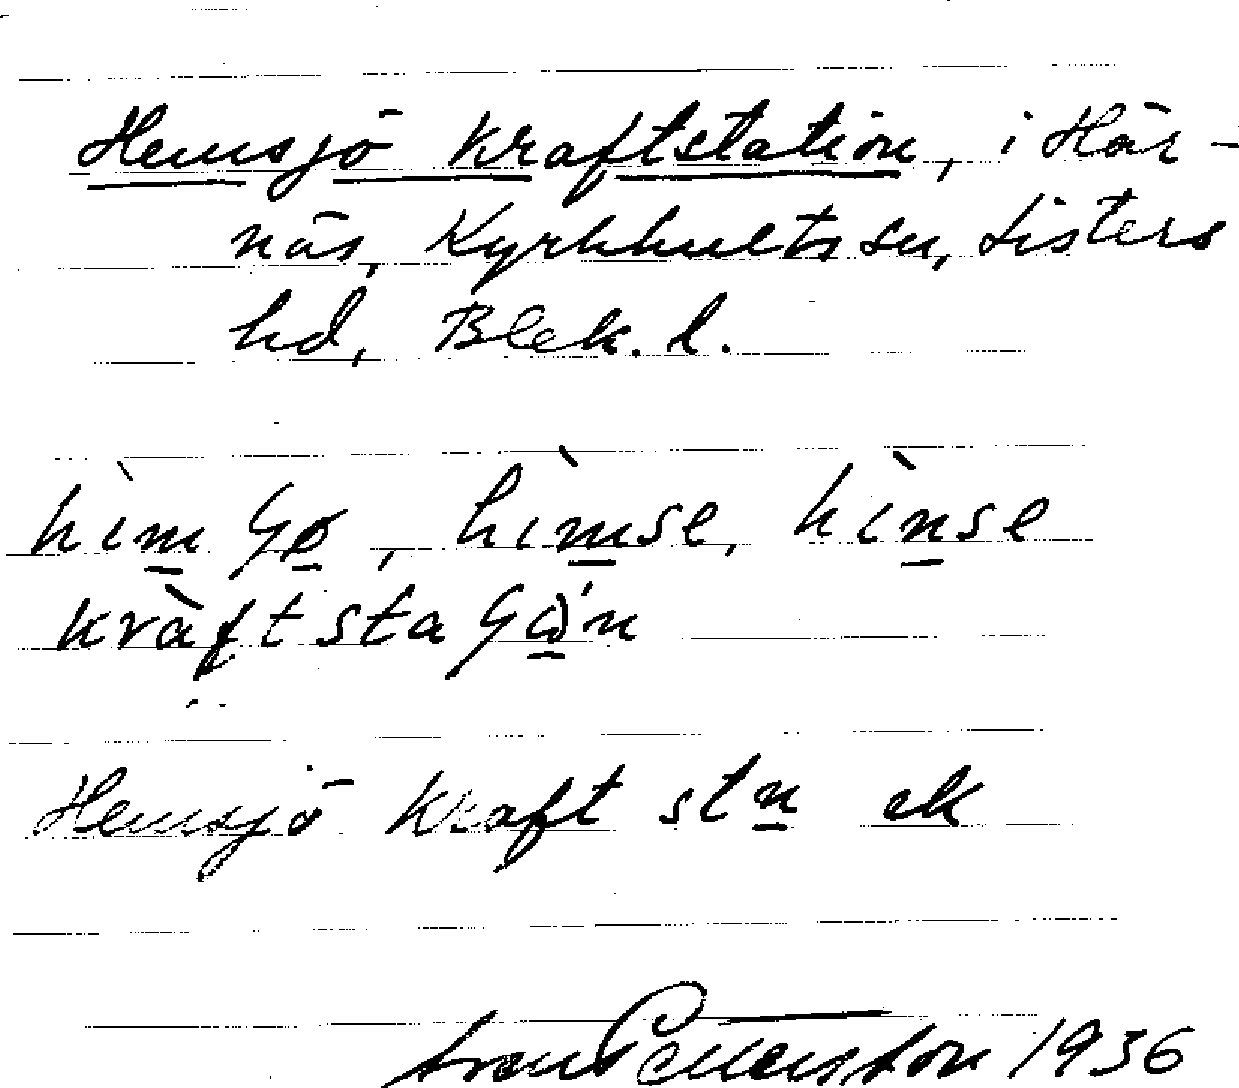 Hemsjö kraftstation, i Här-
näs, Kyrkhults sn, Listers
hd, Blek. l.
hìmʃø, hìmse, hìnse
kràftstaʃón
Hemsjö kraft stn ek
Sven Pettersson 1936